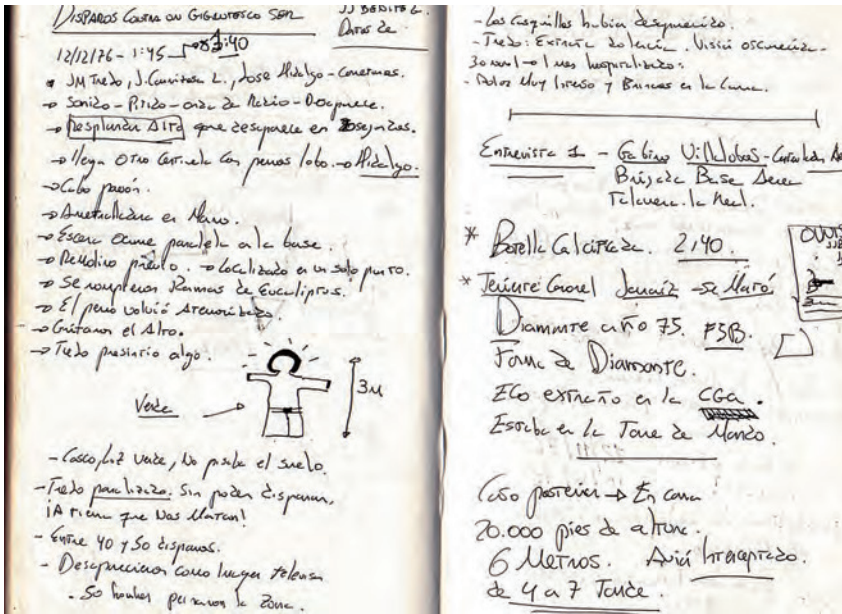 DISPAROS CONTRA UN GIGANTESCO SER
JJ BENITEZ
Datos de
12/12/76 - 1:45 → 3:40
JM Trejo, J. Carrizosa L., Jose Hidalgo - Contreras.
→ Sonido - Pitido - onda de Radio - Desaparece.
→ Resplandor Alto que desaparece en segundos.
→ llega otro centinela con perros lobo. → Hidalgo.
→ Cabo
→ Ametralladora en Mano.
→ ocurre paralela a la base.
→ Remolino previo. → Localizado en un solo punto.
→ Se rompieron Ramas de Eucaliptus.
→ El perro volvió Atemorizado.
→ Gritaron el Alto.
→ Trejo presintió algo.
Verde
3M
- Casco, Luz verde, No pisaba el suelo.
- Trejo paralizado. Sin poder disparar.
¡A tierra que Nos Matan!
- Entre 40 y 50 disparos.
- Desapareciendo como imagen televisor
- 50 hombres peinaron la Zona.
- Los Casquillos habían desaparecido.
- Trejo: Extraña dolencia. Visión oscurecida.
→ 1 mes hospitalizado.
- Dolor Muy intenso y Brincos en la Cama.
Entrevista 1 - Gabino Villalobos -
Brigada Base Aerea
Talavera la Real.
* Botella Calcificada. 2:40.
* Teniente Coronel - se Mató.
Diamante año 75. F5B.
Forma de Diamante.
Eco extraño en la CGA.
Estaba en la Torre de Mando.
Caso posterior →
20.000 pies de altura.
6 Metros. Avión Interceptado.
de 4 a 7 Tarde.